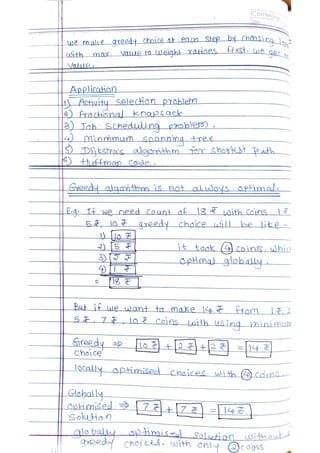 we make greedy choice at each step by choosing
with max value to weight ratioes first. we get
value.
Application
1) Activity selection problem
2) Fractional knapsack
3) Job Scheduling problem.
4) Minmimum spanning tree
5) Dijkstra's algorithm for shortest Path
6) Huffman code.
Greedy algorithm is not always optimal.
Eg. If we need count of 18 ₹ with coins 1₹
5₹, 10 ₹ greedy choice will be like -
1) 10 ₹
2) 5 ₹ it took ④ coins. which
3) 2 ₹ optimal globally.
4) 1 ₹
= 18 ₹
But if we want to make 14 ₹ from 1₹
5₹, 7₹, 10₹ coins with using minimum
Greedy ⇒ 10 ₹ + 2 ₹ + 2 ₹ = 14 ₹
choice
locally optimised choices with coins.
Globally
optimised ⇒ 7 ₹ + 7 ₹ = 14 ₹
Solution
globally optimised solution without
greedy choices. with only ② coins